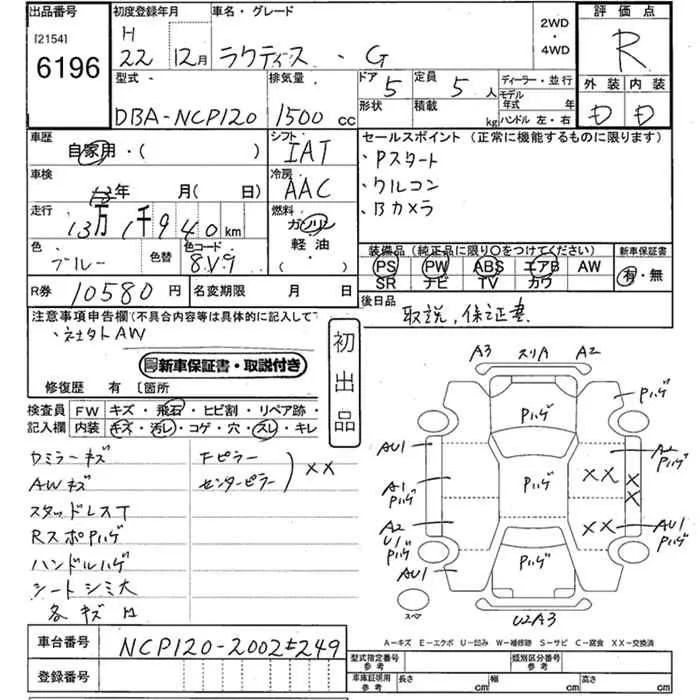 出品番号 初度登録年月 車名・グレード 2WD・4WD 評価点
[2154]
6196
H
22 12月 ラクティス・G R
型式 排気量 ドア 5 定員 5人 ディーラー・並行 外装 内装
モデル年式 年
DBA-NCP120 1500cc 形状 積載 kg ハンドル 左・右 D D
車歴 シフト セールスポイント (正常に機能するものに限ります)
自家用・( ) IAT ・Pスタート
車検 冷房 ・クルコン
年 月( 日) AAC ・Bカメラ
走行 燃料
13万1千940km ガソリン
軽油
・( )
色 色替 色コード 装備品 (純正品に限り○をつけてください) 新車保証書
ブルー 8V9 PS PW ABS エアB AW 有・無
SR ナビ TV カワ
R券 10580円 名変期限 月 日 後日品
取説、保証書
注意事項申告欄(不具合内容等は具体的に記入して
・社外AW 初出品
新車保証書・取説付き
修復歴 有 [箇所
検査員 FW キズ・飛石・ヒビ割・リペア跡・
記入欄 内装 キズ・汚レ・コゲ・穴・スレ・キレ
ミラーキズ Fピラー
AWキズ センターピラー ××
スタッドレスT
RスポPハゲ
ハンドルハゲ
シートシミ大
各キズ
A3 スリA A2
Pハゲ Pハゲ
AU1 A2 Pハゲ
A1 Pハゲ Pハゲ ×× ××
A2 U1 Pハゲ ×× AU1 Pハゲ
AU1 Pハゲ
スペア U2A3
A－キズ E－エクボ U－凹み W－補修跡 S－サビ C－腐食 XX－交換済
車台番号 NCP120-2002249
登録番号
型式指定番号 参考 類別区分番号 参考
車庫証明用 参考 長さ cm 幅 cm 高さ cm